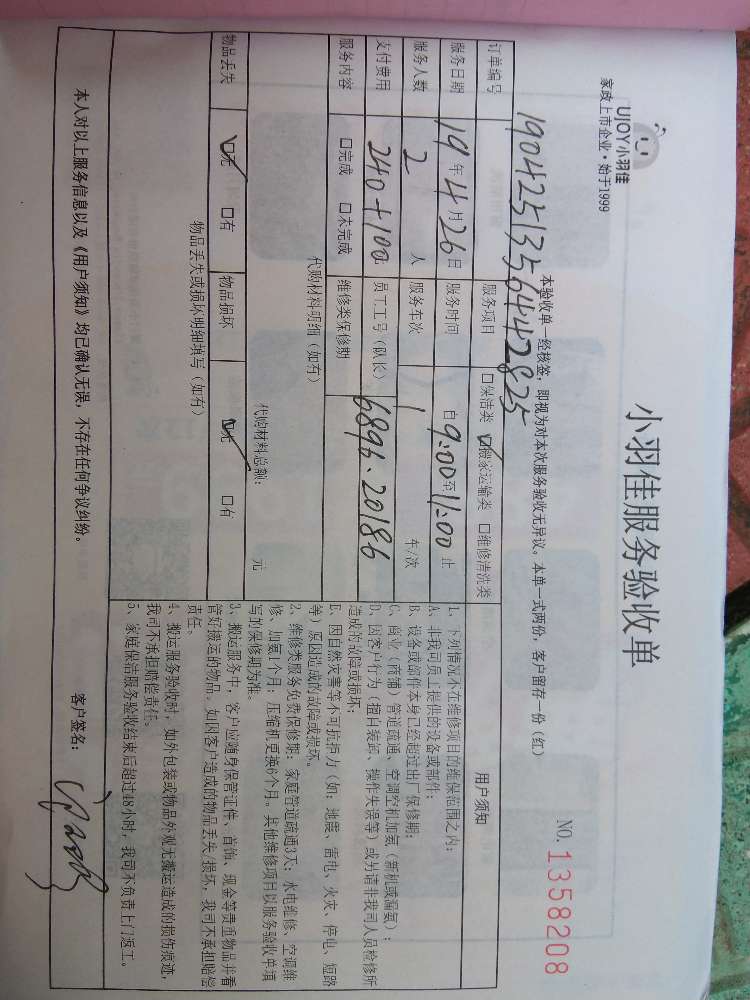 UJOY小羽佳
家政上市企业·始于1999
小羽佳服务验收单
NO.1358208
本验收单一经核签，即视为对本次服务验收无异议。本单一式两份，客户留存一份（红）
订单编号 19042513564442825 服务项目 □保洁类 ☑搬家运输类 □维修清洗类
服务日期 19年4月26日 服务时间 自9:00至11:00止
服务人数 2人 服务车次 1 车/次
支付费用 240+100元 员工工号（队长） 6896、20186
服务内容 □完成 □未完成 维修类保修期
代购材料明细（如有）
代购材料总额： 元
物品丢失 ☑无 □有 物品损坏 ☑无 □有
物品丢失或损坏明细填写（如有）
用户须知
1、下列情况不在维修项目的维保范围之内：
A、非我司员工提供的设备或部件；
B、设备或部件本身已经超过出厂保修期；
C、商业（商铺）管道疏通、空调空机加氨（新机或漏氨）；
D、因客户行为（擅自装卸、操作失误等）或另请非我司人员检修所
造成的故障或损坏；
E、因自然灾害等不可抗拒力（如：地震、雷电、火灾、停电、短路
等）原因造成的故障或损坏。
2、维修类服务免费保修期：家庭管道疏通3天；水电维修、空调维
修、加氨1个月；压缩机更换6个月。其他维修项目以服务验收单填
写的保修期为准。
3、搬运服务中，客户应随身保管证件、首饰、现金等贵重物品并看
管好搬运的物品，如因客户造成的物品丢失/损坏，我司不承担赔偿
责任。
4、搬运服务验收时，如外包装或物品外观无搬运造成的损伤痕迹，
我司不承担赔偿责任。
5、家庭保洁服务验收结束后超过48小时，我司不负责上门返工。
本人对以上服务信息以及《用户须知》均已确认无误，不存在任何争议纠纷。
客户签名：